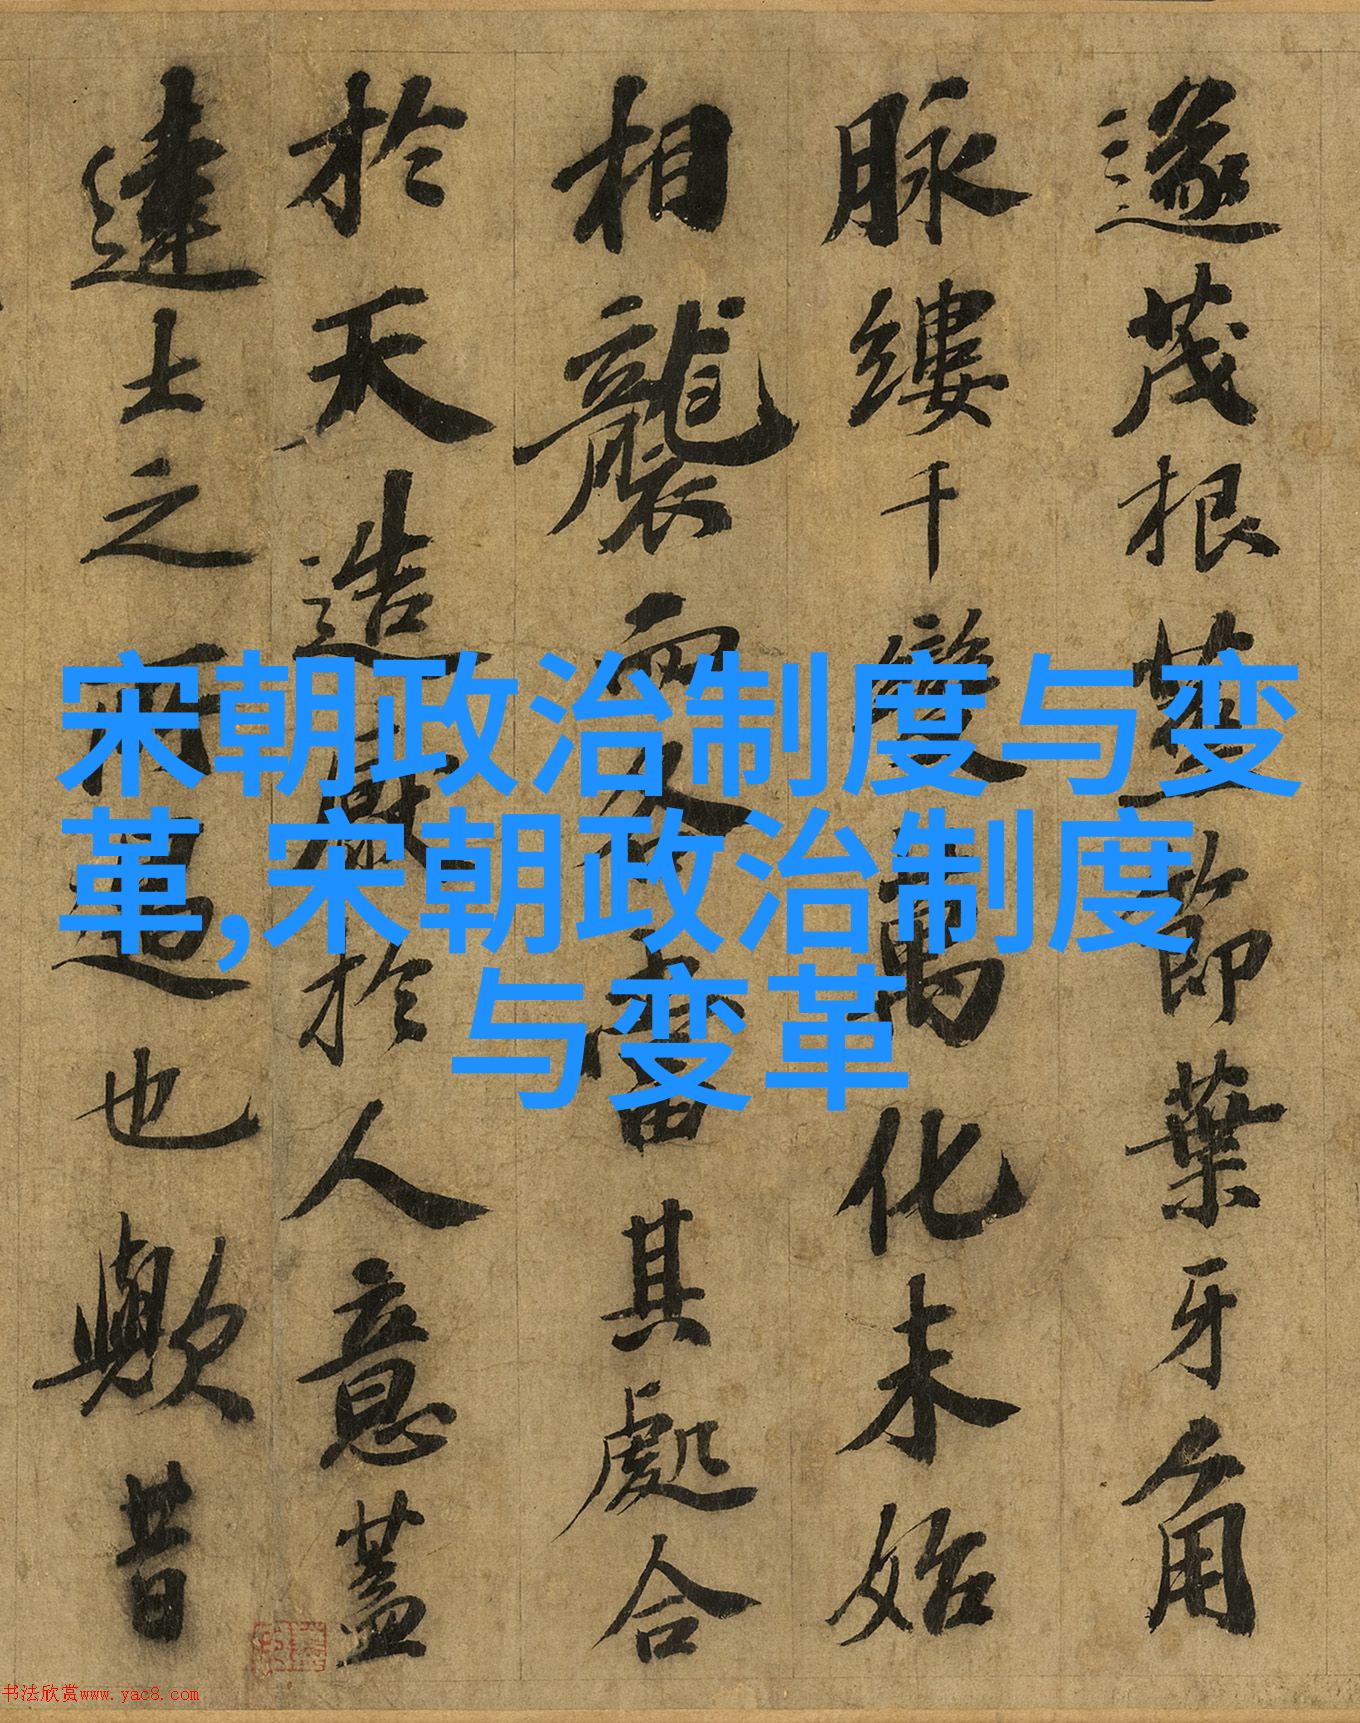 遂茂根莖節葉牙角
脉縷千變萬化未始
相襲而各當其處合
於天造厭於人意蓋
達士之所寓也歟昔
宋朝政治制度与变
革,宋朝政治制度
与变革
书法欣赏www.yac8.com